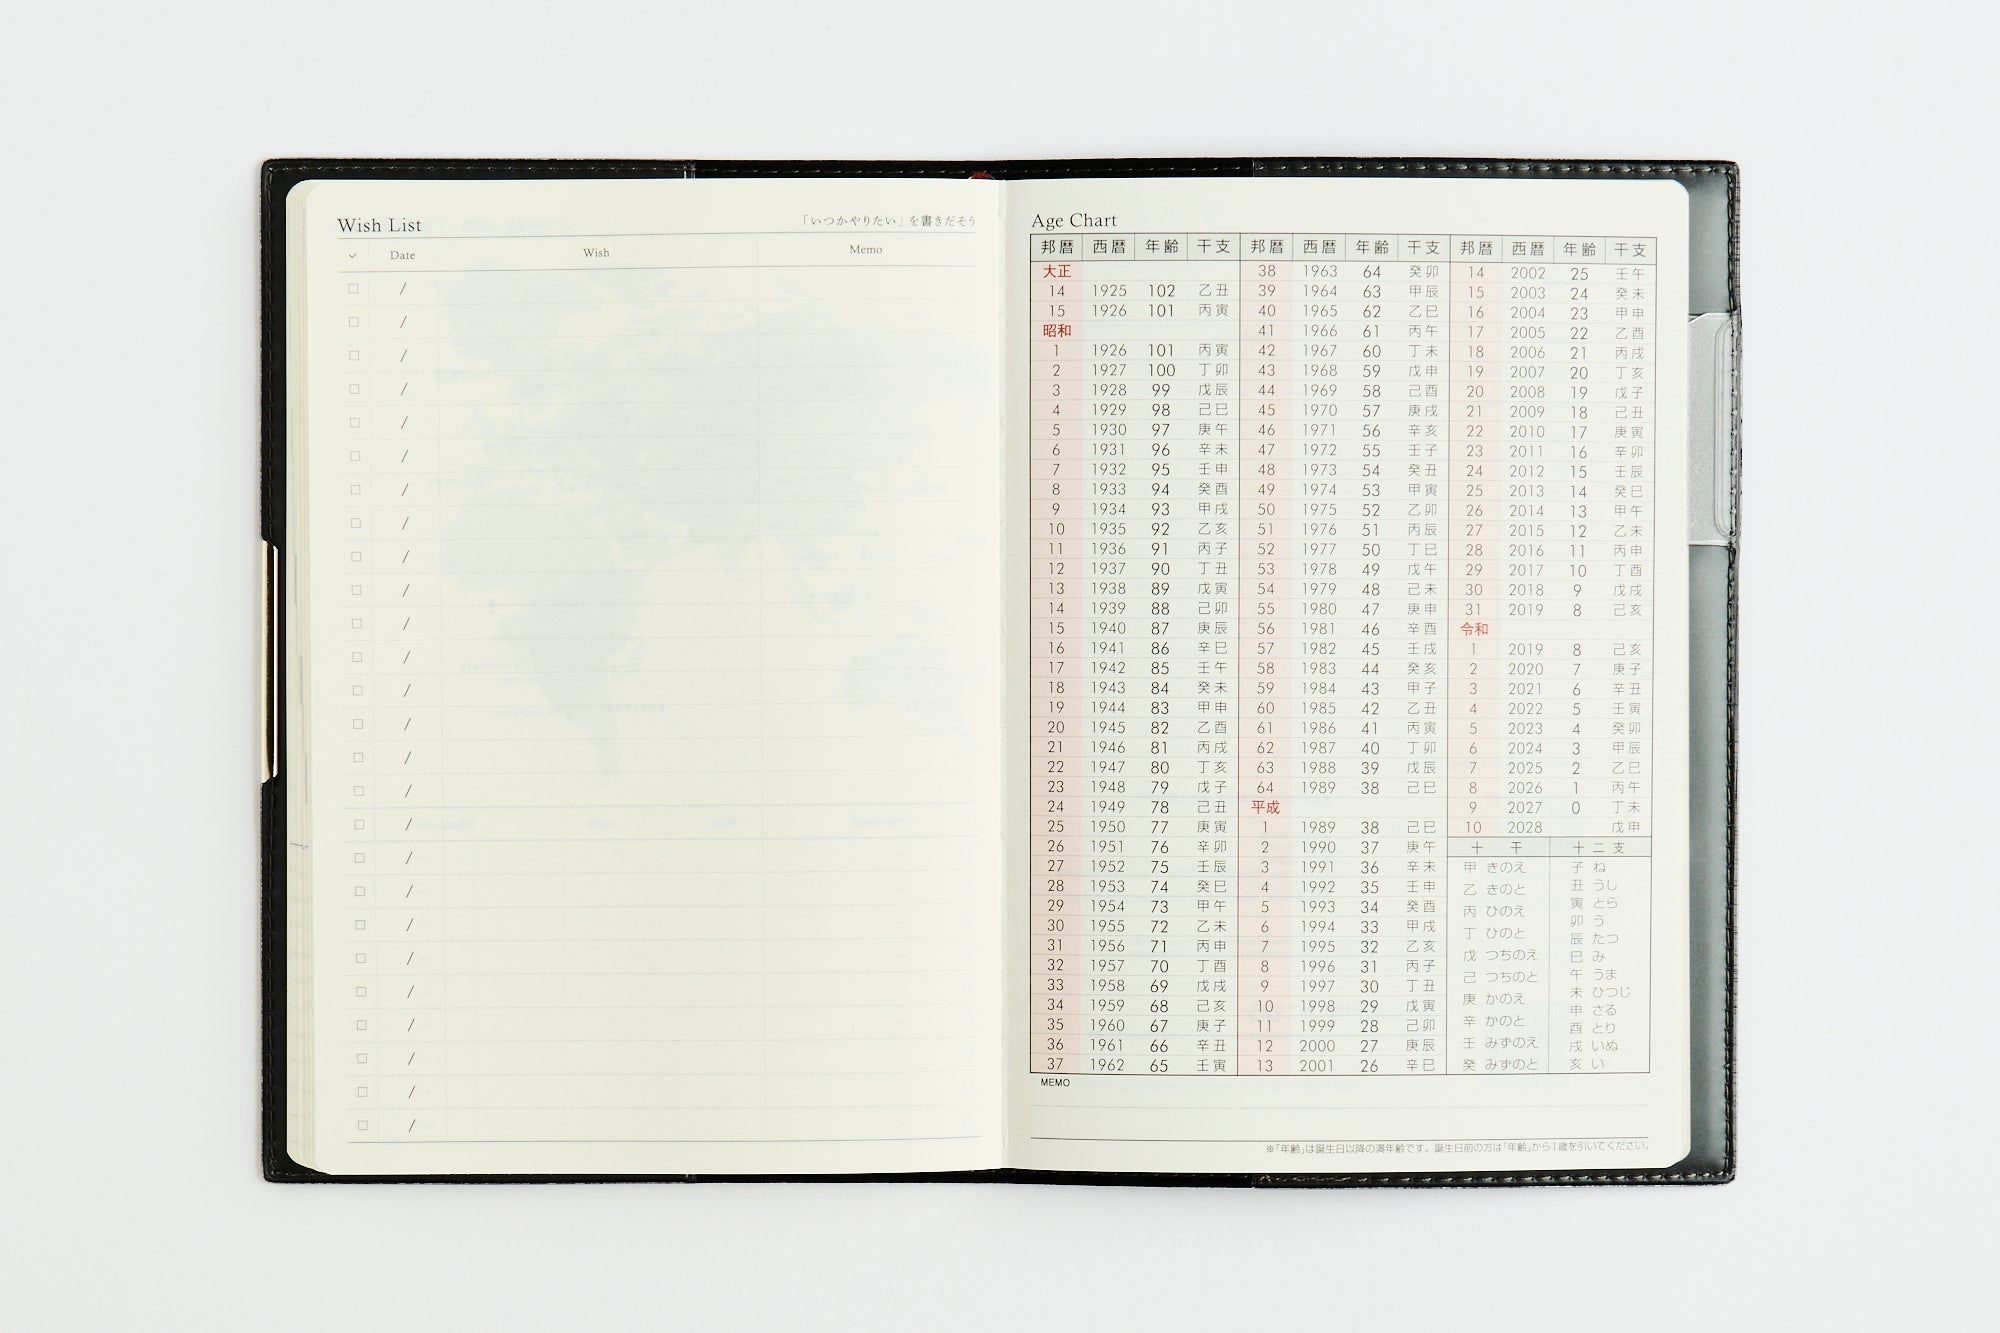 Wish List 「いつかやりたい」を書きだそう
✓ Date Wish Memo
□ /
□ /
□ /
□ /
□ /
□ /
□ /
□ /
□ /
□ /
□ /
□ /
□ /
□ /
□ /
□ /
□ /
□ /
□ /
□ /
□ /
□ /
□ /
□ /
□ /
□ /
Age Chart
邦暦 西暦 年齢 干支 邦暦 西暦 年齢 干支 邦暦 西暦 年齢 干支
大正 38 1963 64 癸卯 14 2002 25 壬午
14 1925 102 乙丑 39 1964 63 甲辰 15 2003 24 癸未
15 1926 101 丙寅 40 1965 62 乙巳 16 2004 23 甲申
昭和 41 1966 61 丙午 17 2005 22 乙酉
1 1926 101 丙寅 42 1967 60 丁未 18 2006 21 丙戌
2 1927 100 丁卯 43 1968 59 戊申 19 2007 20 丁亥
3 1928 99 戊辰 44 1969 58 己酉 20 2008 19 戊子
4 1929 98 己巳 45 1970 57 庚戌 21 2009 18 己丑
5 1930 97 庚午 46 1971 56 辛亥 22 2010 17 庚寅
6 1931 96 辛未 47 1972 55 壬子 23 2011 16 辛卯
7 1932 95 壬申 48 1973 54 癸丑 24 2012 15 壬辰
8 1933 94 癸酉 49 1974 53 甲寅 25 2013 14 癸巳
9 1934 93 甲戌 50 1975 52 乙卯 26 2014 13 甲午
10 1935 92 乙亥 51 1976 51 丙辰 27 2015 12 乙未
11 1936 91 丙子 52 1977 50 丁巳 28 2016 11 丙申
12 1937 90 丁丑 53 1978 49 戊午 29 2017 10 丁酉
13 1938 89 戊寅 54 1979 48 己未 30 2018 9 戊戌
14 1939 88 己卯 55 1980 47 庚申 31 2019 8 己亥
15 1940 87 庚辰 56 1981 46 辛酉 令和
16 1941 86 辛巳 57 1982 45 壬戌 1 2019 8 己亥
17 1942 85 壬午 58 1983 44 癸亥 2 2020 7 庚子
18 1943 84 癸未 59 1984 43 甲子 3 2021 6 辛丑
19 1944 83 甲申 60 1985 42 乙丑 4 2022 5 壬寅
20 1945 82 乙酉 61 1986 41 丙寅 5 2023 4 癸卯
21 1946 81 丙戌 62 1987 40 丁卯 6 2024 3 甲辰
22 1947 80 丁亥 63 1988 39 戊辰 7 2025 2 乙巳
23 1948 79 戊子 64 1989 38 己巳 8 2026 1 丙午
24 1949 78 己丑 平成 9 2027 0 丁未
25 1950 77 庚寅 1 1989 38 己巳 10 2028 戊申
26 1951 76 辛卯 2 1990 37 庚午 十干 十二支
27 1952 75 壬辰 3 1991 36 辛未
28 1953 74 癸巳 4 1992 35 壬申
29 1954 73 甲午 5 1993 34 癸酉
30 1955 72 乙未 6 1994 33 甲戌
31 1956 71 丙申 7 1995 32 乙亥
32 1957 70 丁酉 8 1996 31 丙子
33 1958 69 戊戌 9 1997 30 丁丑
34 1959 68 己亥 10 1998 29 戊寅
35 1960 67 庚子 11 1999 28 己卯
36 1961 66 辛丑 12 2000 27 庚辰
37 1962 65 壬寅 13 2001 26 辛巳
甲 きのえ
乙 きのと
丙 ひのえ
丁 ひのと
戊 つちのえ
己 つちのと
庚 かのえ
辛 かのと
壬 みずのえ
癸 みずのと
子 ね
丑 うし
寅 とら
卯 う
辰 たつ
巳 み
午 うま
未 ひつじ
申 さる
酉 とり
戌 いぬ
亥 い
MEMO
※「年齢」は誕生日以降の満年齢です。誕生日前の方は「年齢」から1歳を引いてください。